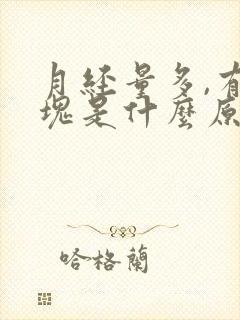 月經量多,有
塊是什麼原
哈格蘭